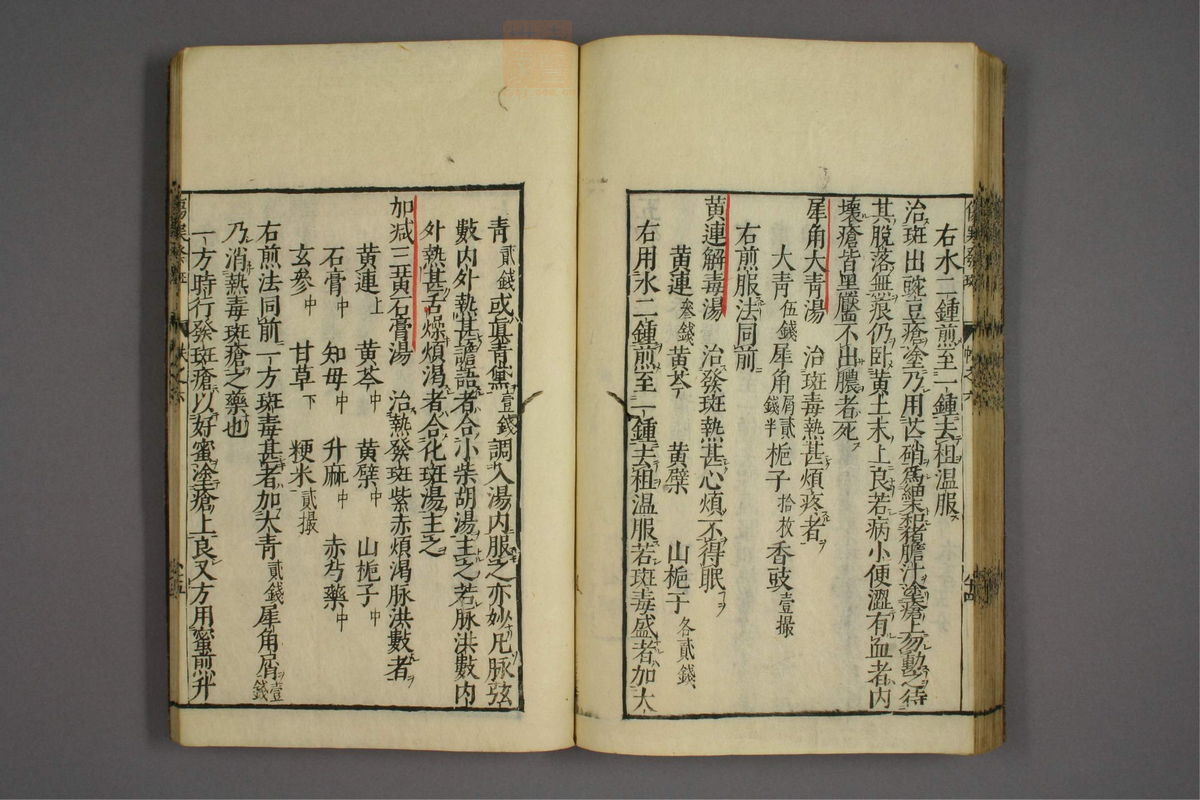 右水二鍾煎至一鍾去柤温服
治斑出豌豆瘡塗乃用芒硝爲細和猪膽汁塗瘡上勿動之待
其脱落無痕仍卧黄土末上良若病小便澀有血者内
壞瘡皆黒靨不出膿者死
犀角大青湯 治斑毒熱甚煩疼者
大青伍錢犀角屑貳錢半梔子拾枚香豉壹撮
右煎服法同前
黄連解毒湯 治發斑熱甚心煩不得眠
黄連叁錢黄芩 黄檗 山梔子各貳錢
右用水二鍾煎至一鍾去柤温服若斑毒盛者加大
青貳錢或真青黛壹錢調入湯内服之亦妙凡脉弦
數内外熱甚譫語者合小柴胡湯主之若脉洪數内
外熱甚舌燥煩渴者合化斑湯主之
加減三黄石膏湯 治熱發斑紫赤煩渴脉洪數者
黄連上 黄芩中 黄檗中 山梔子中
石膏中 知母中 升麻中 赤芍藥中
玄參中 甘草下 粳米貳撮
右煎法同前一方斑毒甚者加大青貳錢犀角屑壹錢
乃消熱毒斑瘡之藥也
一方時行發斑瘡以好蜜塗瘡上良又方用蜜煎升